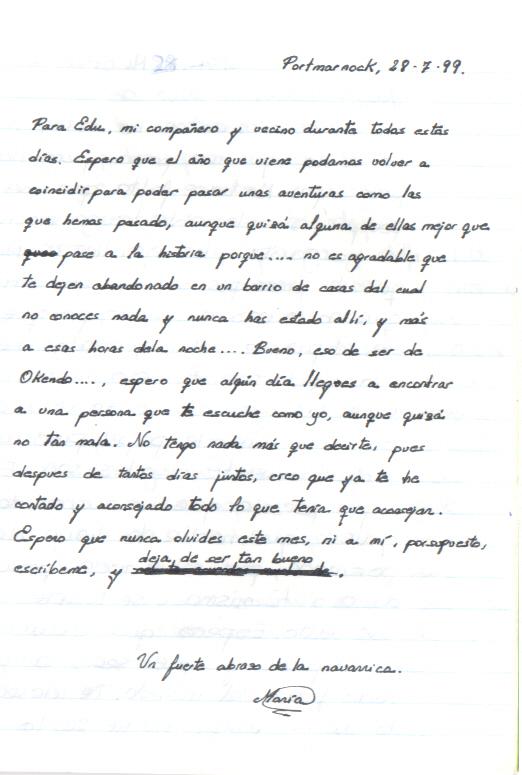 28
Portmarnock, 28-7-99.
Para Edu, mi compañero y vecino durante todas estas
días. Espero que el año que viene podamos volver a
coincidir para poder pasar unas aventuras como las
que hemos pasado, aunque quizá alguna de ellas mejor que
pase a la historia porque.... no es agradable que
te dejen abandonado en un barrio de casas del cual
no conoces nada y nunca has estado allí, y más
a esas horas dela noche.... Bueno, eso de ser de
Okendo...., espero que algún día llegues a encontrar
a una persona que te escuche como yo, aunque quizá
no tan mala. No tengo nada más que decirte, pues
despues de tantos días juntos, creo que ya te he
contado y aconsejado todo lo que tenía que aconsejar.
Espero que nunca olvides este mes, ni a mí, porsupuesto,
escríbeme, y deja de ser tan bueno.
Un fuerte abrazo de la navarrica.
María